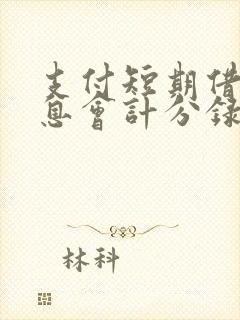 支付短期借
息會計分錄
林科